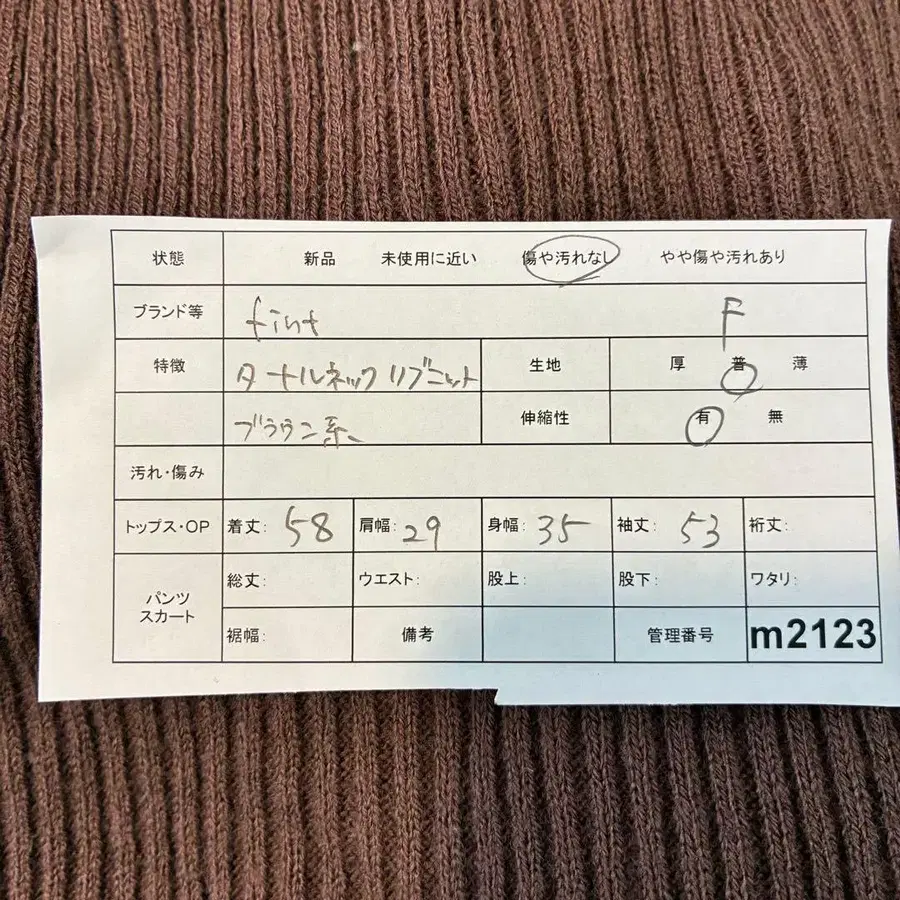 状態 新品 未使用に近い 傷や汚れなし やや傷や汚れあり
ブランド等 fint F
特徴 タートルネック リブニット 生地 厚 普 薄
ブラウン系 伸縮性 有 無
汚れ・傷み
トップス・OP 着丈: 58 肩幅: 29 身幅: 35 袖丈: 53 裄丈:
パンツ スカート 総丈: ウエスト: 股上: 股下: ワタリ:
裾幅: 備考 管理番号 m2123